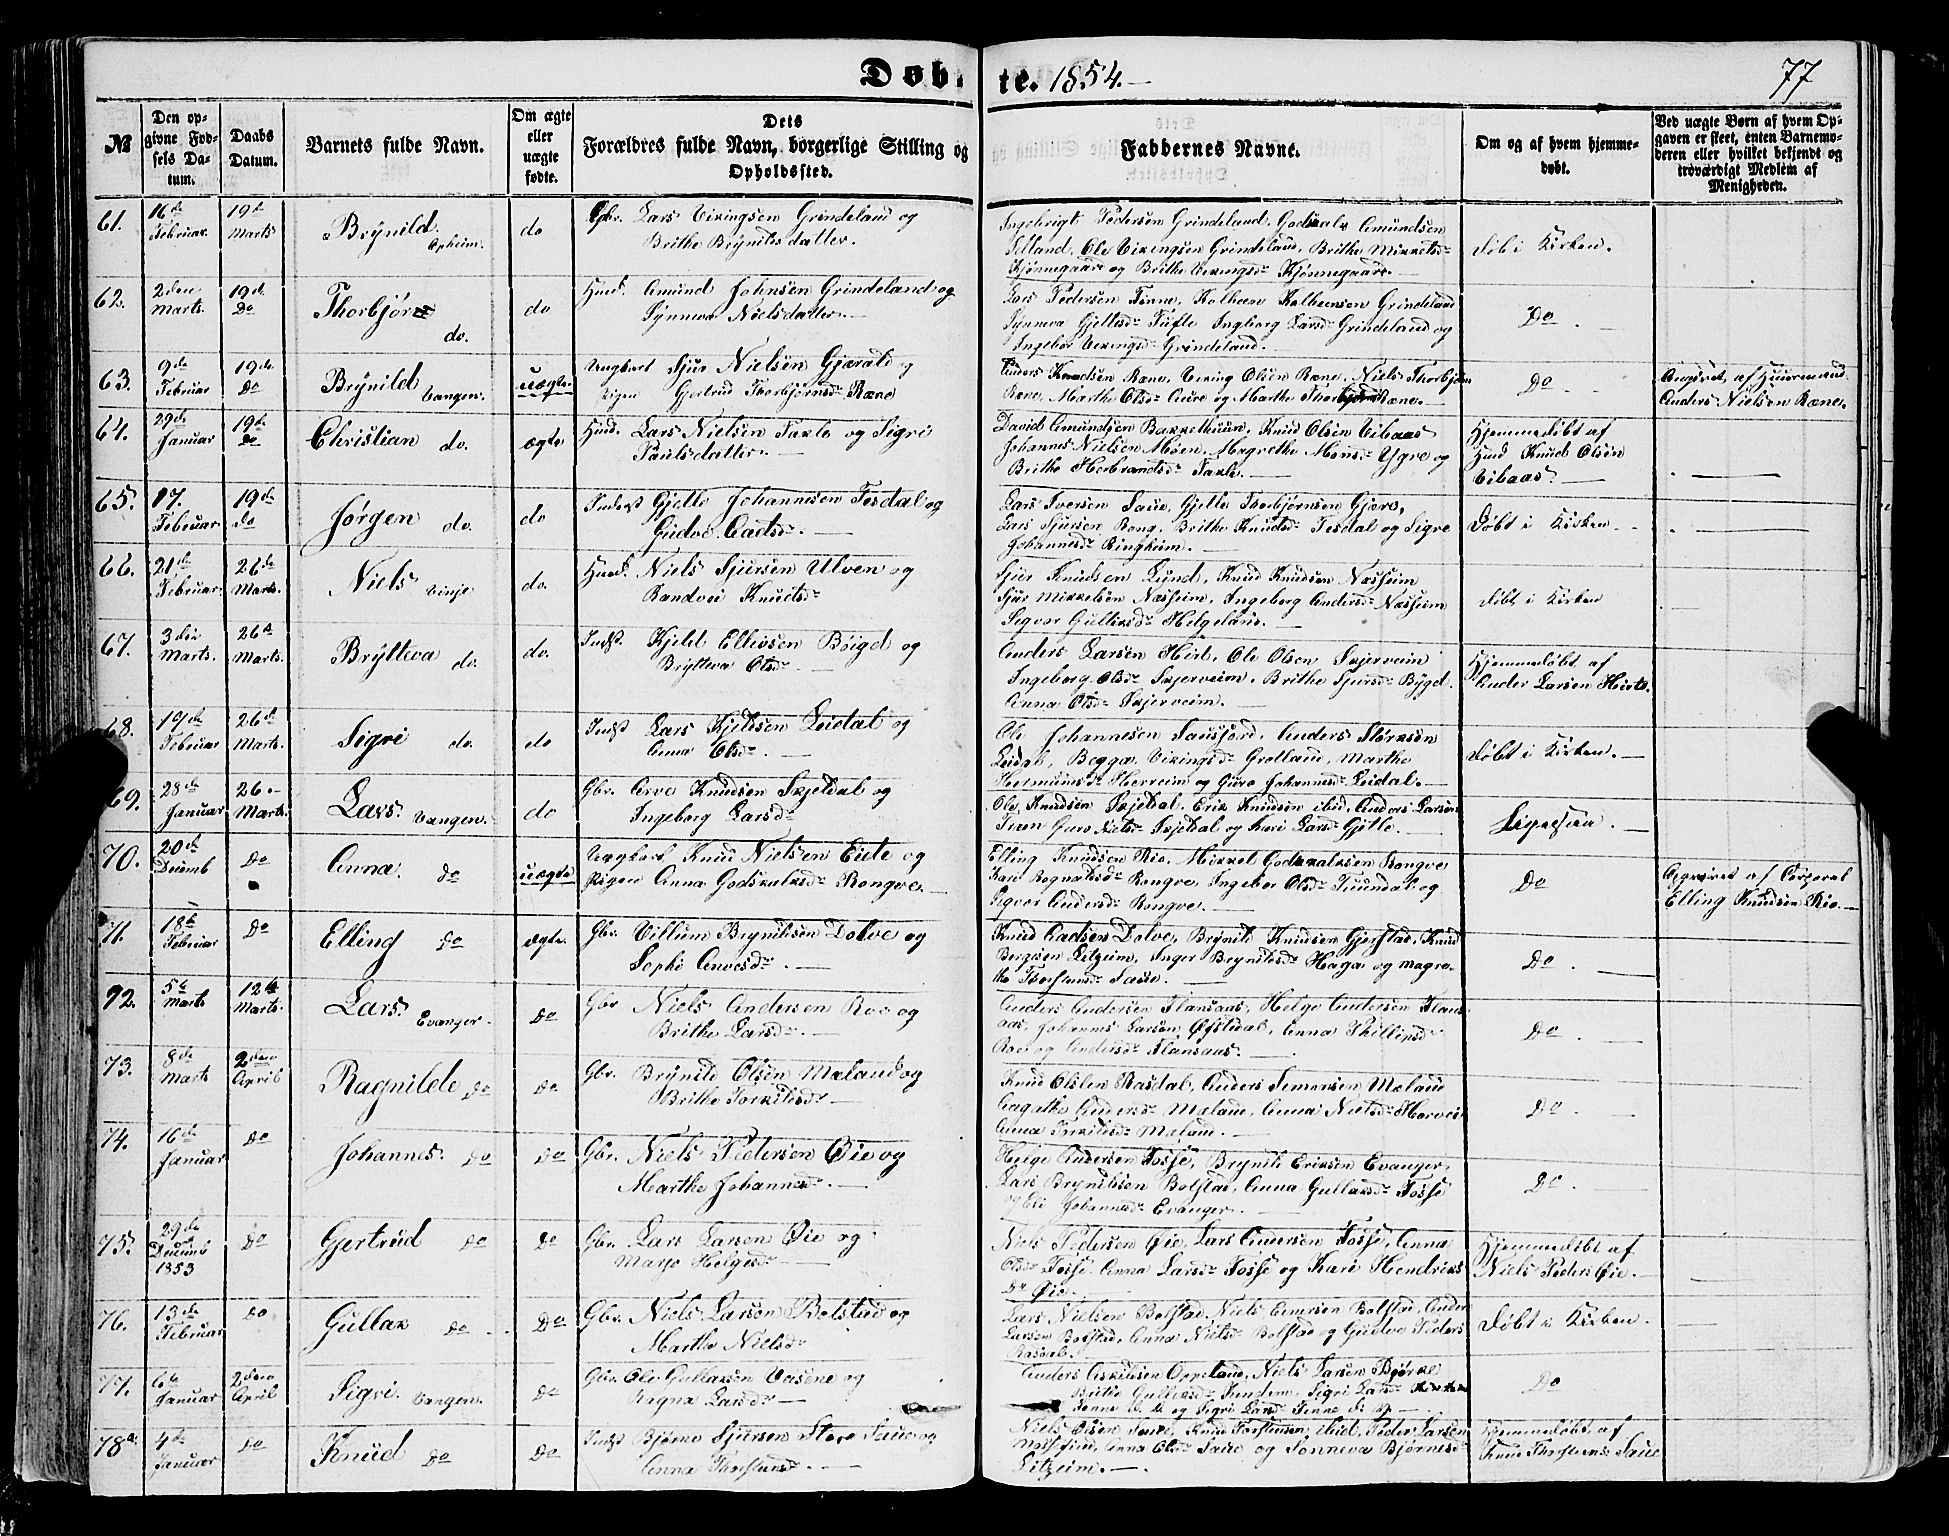 Døbte. 1854.
77
№
Den opgivne Fødsels Datum.
Daabs Datum.
Barnets fulde Navn.
Om ægte eller uægte fødte.
Dets Forældres fulde Navn, borgerlige Stilling og Opholdssted.
Faddernes Navne.
Om og af hvem hjemmedøbt.
Ved uægte Børn af hvem Opgaven er skeet, enten Barnemoderen eller hvilket bekjendt og troværdigt Medlem af Menigheden.
61. 16de Februar 19de Marts Brynild Opheim. do Gbr. Lars Vikingsen Grindeland og
Brithe Brynilds datter.
Ingebrigt Pedersen Grindeland, Godskalk Amundsen
Ole Vikingsen Grindeland, Brithe Mikkelsd
Kjønnegaard og Brithe Vikingsd Kjønnegaard.
Døbt i Kirken.
62. 2den Marts. 19de Do Thorbjør do. do Huusd. Amund Johnsen Grindeland og
Synneva Nielsdatter.
Lars Pedersen Finne, Kolbeen Kolbeensen Grindeland
Synneva Gjellesd Tufte Ingborg Larsd Grindeland og
Ingebor Vikingsd Grindeland.
Do
63. 9de Februar 19de Do Brynild Vangen. uægte Ungkarl Sjur Nielsen Gjerald og
Pigen Gjertrud Thorbjørnsd Rene
Anders Knudsen Rene, Viking Olsen Rene, Niels Thorbjørn
Rene, Marthe Olsd og Marthe Rene.
Do
Angivet af Huusmand
Anders Nielsen Rene.
64. 29de Januar 19de Do Christian do. ægte Huusd. Lars Nielsen Saxle og Sigri
Poulsdatter.
David Amundsen Bakkethuun, Knud Olsen Vibaas
Johannes Nielsen Møen, Magrethe Monsd Ygre og
Brithe Herbrandsd Saxle.
Hjemmedøbt af
Huusd Knud Olsen
Vibaas
65. 17. Februar 19de Do Jørgen do. do Inderst Gjelle Johannesen Tesdal og
Gudve
Lars Iversen Saue, Gjelle Thorbjørnsen Gjøre,
Lars Sjursen Rong, Brithe Knudsd Tesdal og Sigre
Johannesd Ringheim.
Døbt i Kirken.
66. 21de Februar 26de Marts. Niels Vinje do. Huusd. Niels Sjursen Ulven og
Randvei Knudsd
Sjur Knudsen Lund, Knud Knudsen Næsheim
Sjur Mikkelsen Næsheim, Ingeborg Andersd Næsheim
Sigvor Gulleksd Helgeland.
Døbt i Kirken
67. 3die Marts. 26de Marts. Brytteva do. do. Indst. Kjeld Ellevsen Bøigd og
Brytteva Olsd
Anders Larsen Hirt, Ole Olsen Skjerveim
Ingeborg Olsd Skjerveim, Brithe Sjursd Bygd
Anna Olsd Skjerveim.
Hjemmedøbt af
Ander Larsen Hirte.
68. 19de Februar 26de Marts. Sigri do. do Indst Lars Kjeldsen Leidal og
Anna Olsd
Ole Johannesen Sausjord, Anders Størksen
Leidal, Begga Vikingsd Marthe
Hermundsd Herreim og Guro Johannesd Leidal.
Døbt i Kirken.
69. 28de Januar 26 Marts. Lars. Vangen. do Gbr. Arve Knudsen Skjeldal og
Ingeborg Larsd
Ole Knudsen Skjeldal. Erik Knudsen ibid, Anders Larsen
Guro Nielsd Skjeldal og Kari Larsd Gjelle.
Ligesaa.
70. 20de Decemb Do Anna. Do uægte Ungkarl Knud Nielsen Eide og
Pigen Anna Godskalksd Rongve.
Elling Knudsen Rio, Mikkel Godskalksen Rongve
Kari Rognaldsd Rongve, Ingebor Olsd og
Sigvor Andersd Rongve.
Do
Opgivet af Corporal
Elling Knudsen Rio.
71. 18de Februar Do Elling Do ægte. Gbr. Villum Brynildsen Dolve og
Sophi Arvesd.
Knud Dolve, Brynild Knudsen Gjerstad, Knud
Inger Brynildsd Haga og Magre-
the Thorstensd Saue.
Do
72. 5te Marts 12te Marts. Lars. Evanger. Do Gbr Niels Andersen Roe og
Brithe Larsd
Anders Andersen Flansaas, Helge Andersen Flans
aas, Johannes Larsen Anna
Roe og Andersd Flansaas.
Do
73. 8de Marts 2den April Ragnilde Do Do Gbr. Brynild Olsen Mæland og
Brithe Torkildsd
Knud Olsen Rasdal, Anders Simonsen Mæland
Aagathe Andersd Mæland, Anna Nielsd
Anna Torkildsd Mæland.
Do
74. 16de Januar Do Johannes. Do Do Gbr. Niels Pedersen Øie og
Marthe Johannesd.
Helge Andersen Fosse, Brynild Eriksen Evanger,
Lars Brynildsen Bolstad, Anna Gullaksd Fosse
og Eli Johannesd Evanger.
Do
75. 29de Decemb 1853 Do Gjertrud Do Do Gbr. Lars Larsen Øie og
Marje Helgesd
Niels Pedersen Øie, Lars Andersen Fosse, Anna
Olsd Fosse Anna Larsd Fosse og Kari Hendriks
Dr Øie.
Hjemmedøbt af
Niels Peders Øie.
76. 13de Februar Do Gullak Do Do Gbr. Niels Larsen Bolstad og
Marthe Nielsd
Lars Nielsen Bolstad, Niels Andersen Bolstad, Ander
Larsen Bolstad, Anna Nielsd Bolstad og Gudve Peders
Rasdal.
Døbt i Kirken.
77. 6te Januar 2den April Sigri. Vangen. Do Gbr. Ole Gullaksen og
Ragna Larsd
Anders Oppeland, Niels Larsen Bjørke
Brithe Gulleksd Sigri Larsd
og Sigri Larsd Finne
Do
78a. 4de Januar Do Knud Do Do Indst Bjørne Sjursen Store Saue og
Anna Thorstensd
Niels Olsen Saue, Knud Torstensen ibid, Peder Larsen
Anna Olsd Saue og Sønneva Bjørnesd
Litzeim.
Hjemmedøbt af
Knud Thorstens Saue